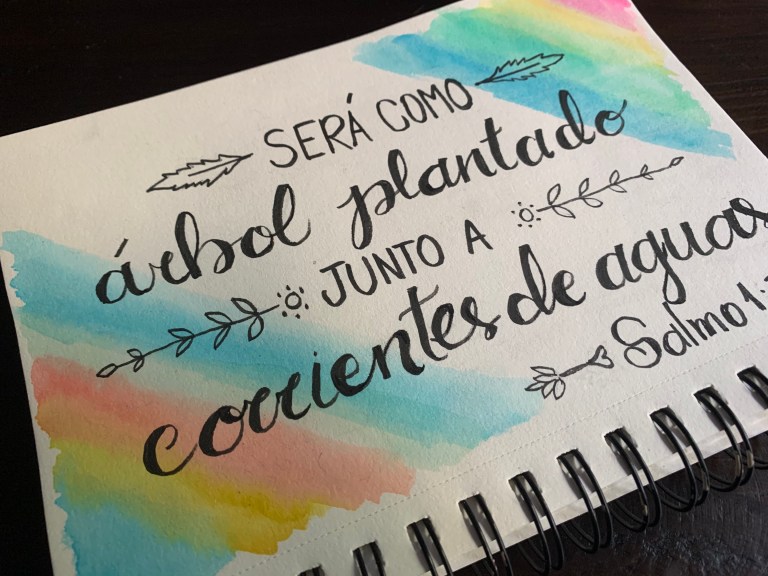 SERÁ COMO
árbol plantado
JUNTO A
corrientes de aguas
Salmo 1: